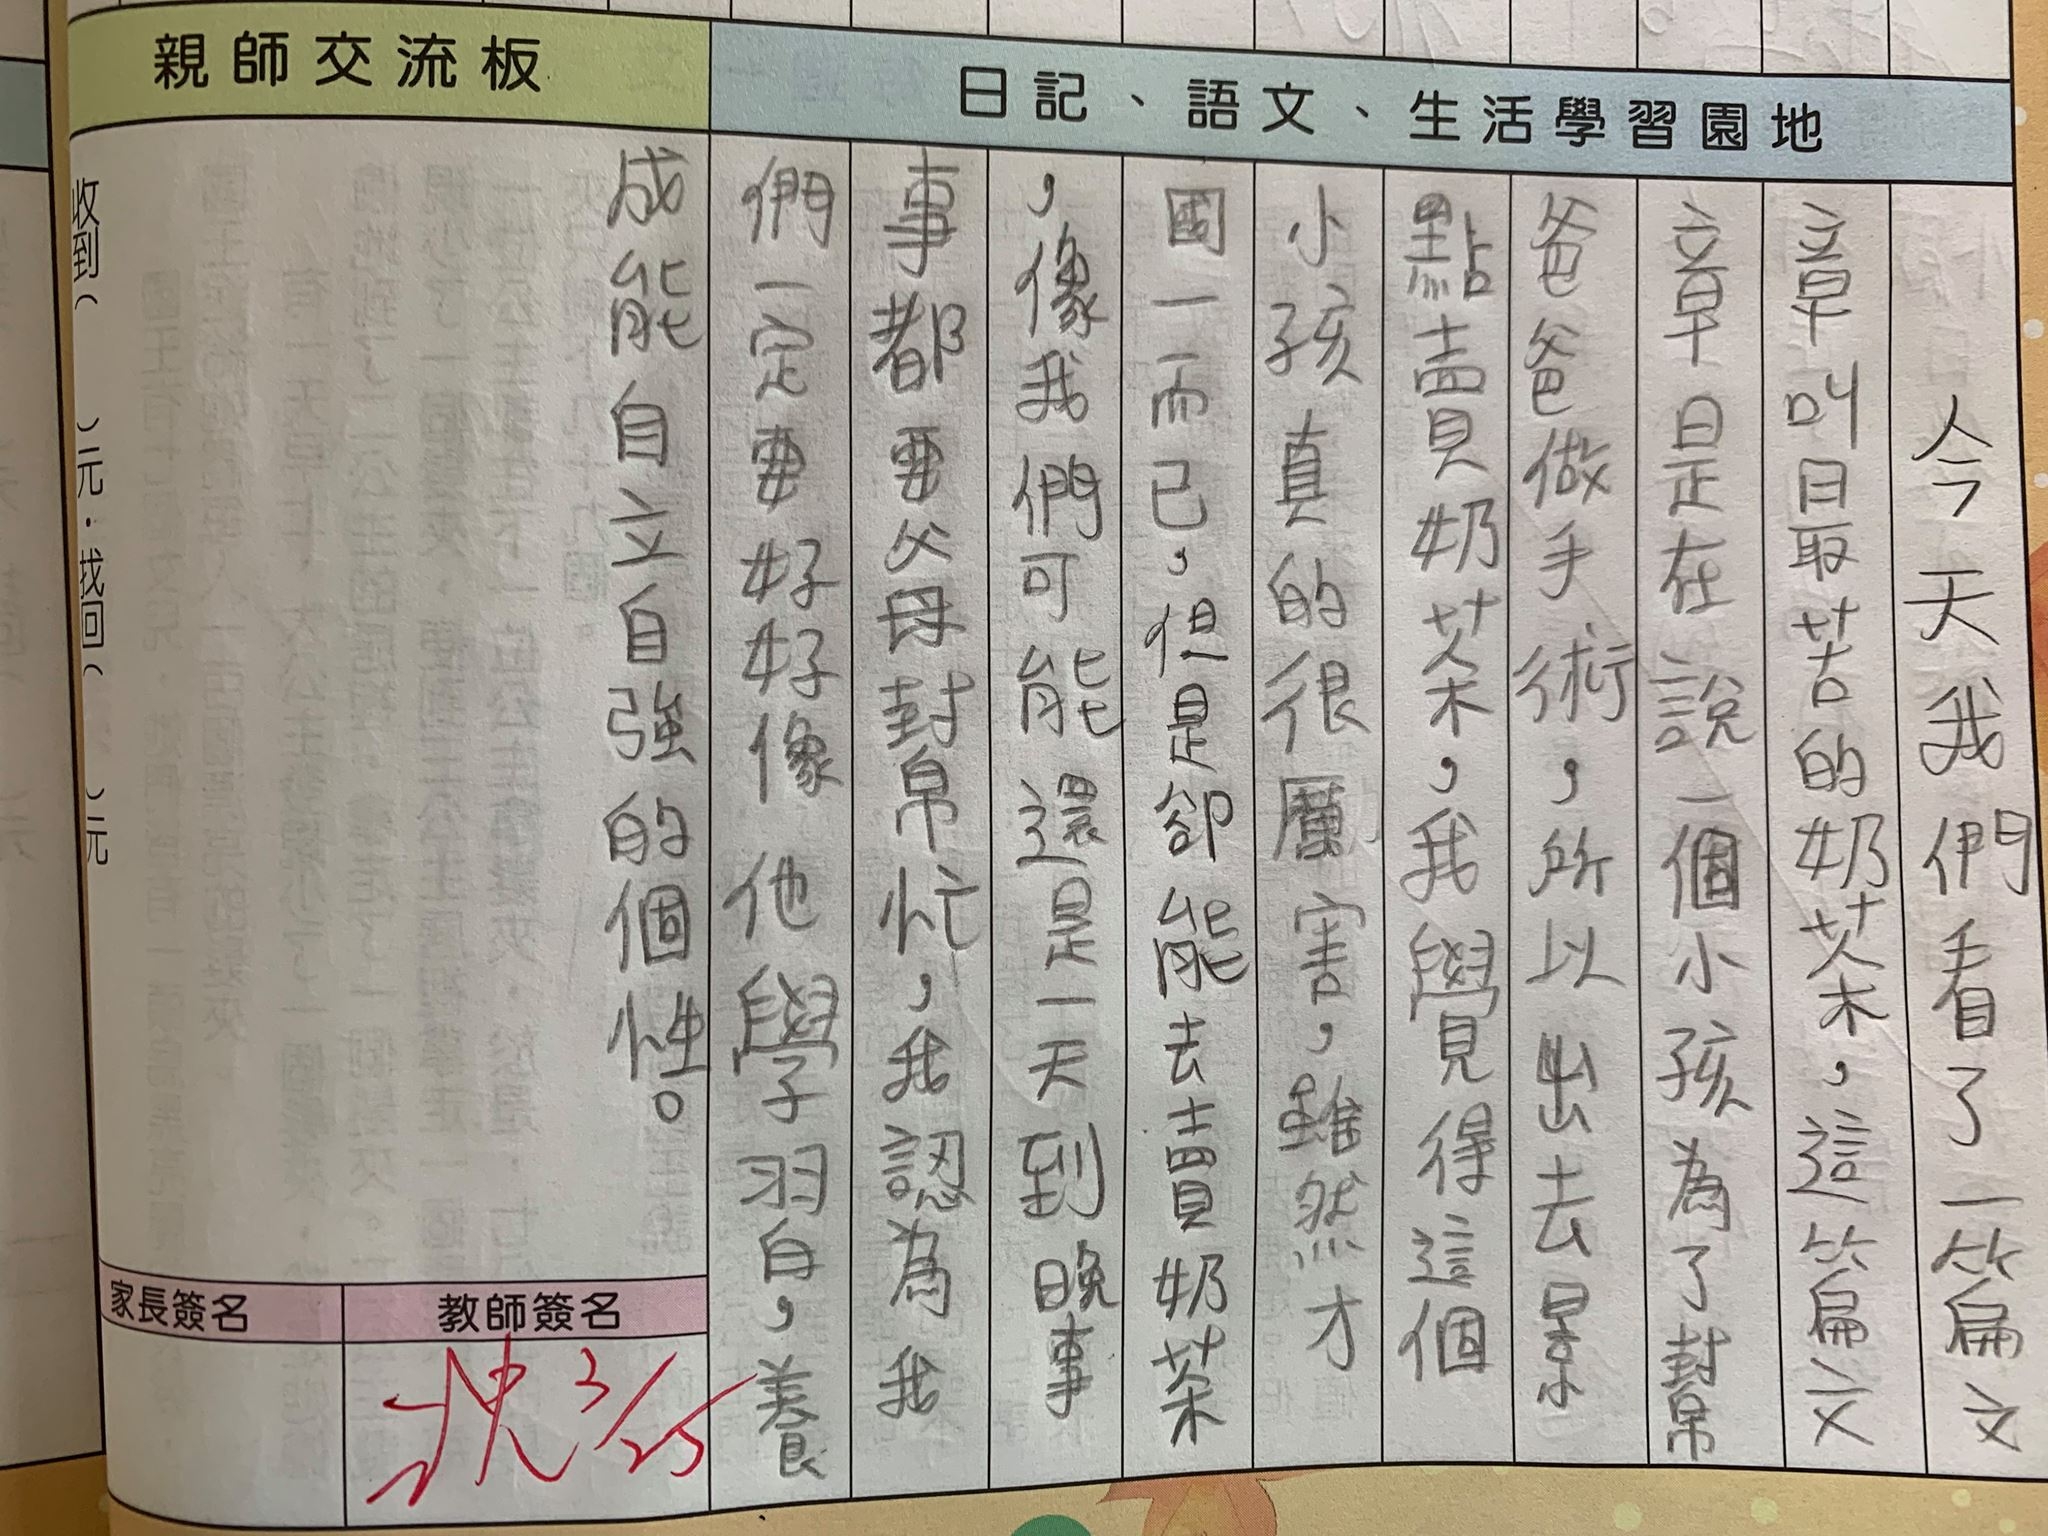 日記、語文、生活學習園地
今天我們看了一篇文
章叫最苦的奶茶，這篇文
章是在說一個小孩為了幫
爸爸做手術，所以出去景
點賣奶茶，我覺得這個
小孩真的很厲害，雖然才
國一而已，但是卻能去賣奶茶
，像我們可能還是一天到晚事
事都要父母幫忙，我認為我
們一定要好好像他學習，養
成能自立自強的個性。
親師交流板
收到（　　）元．找回（　　）元
教師簽名
3/25
家長簽名